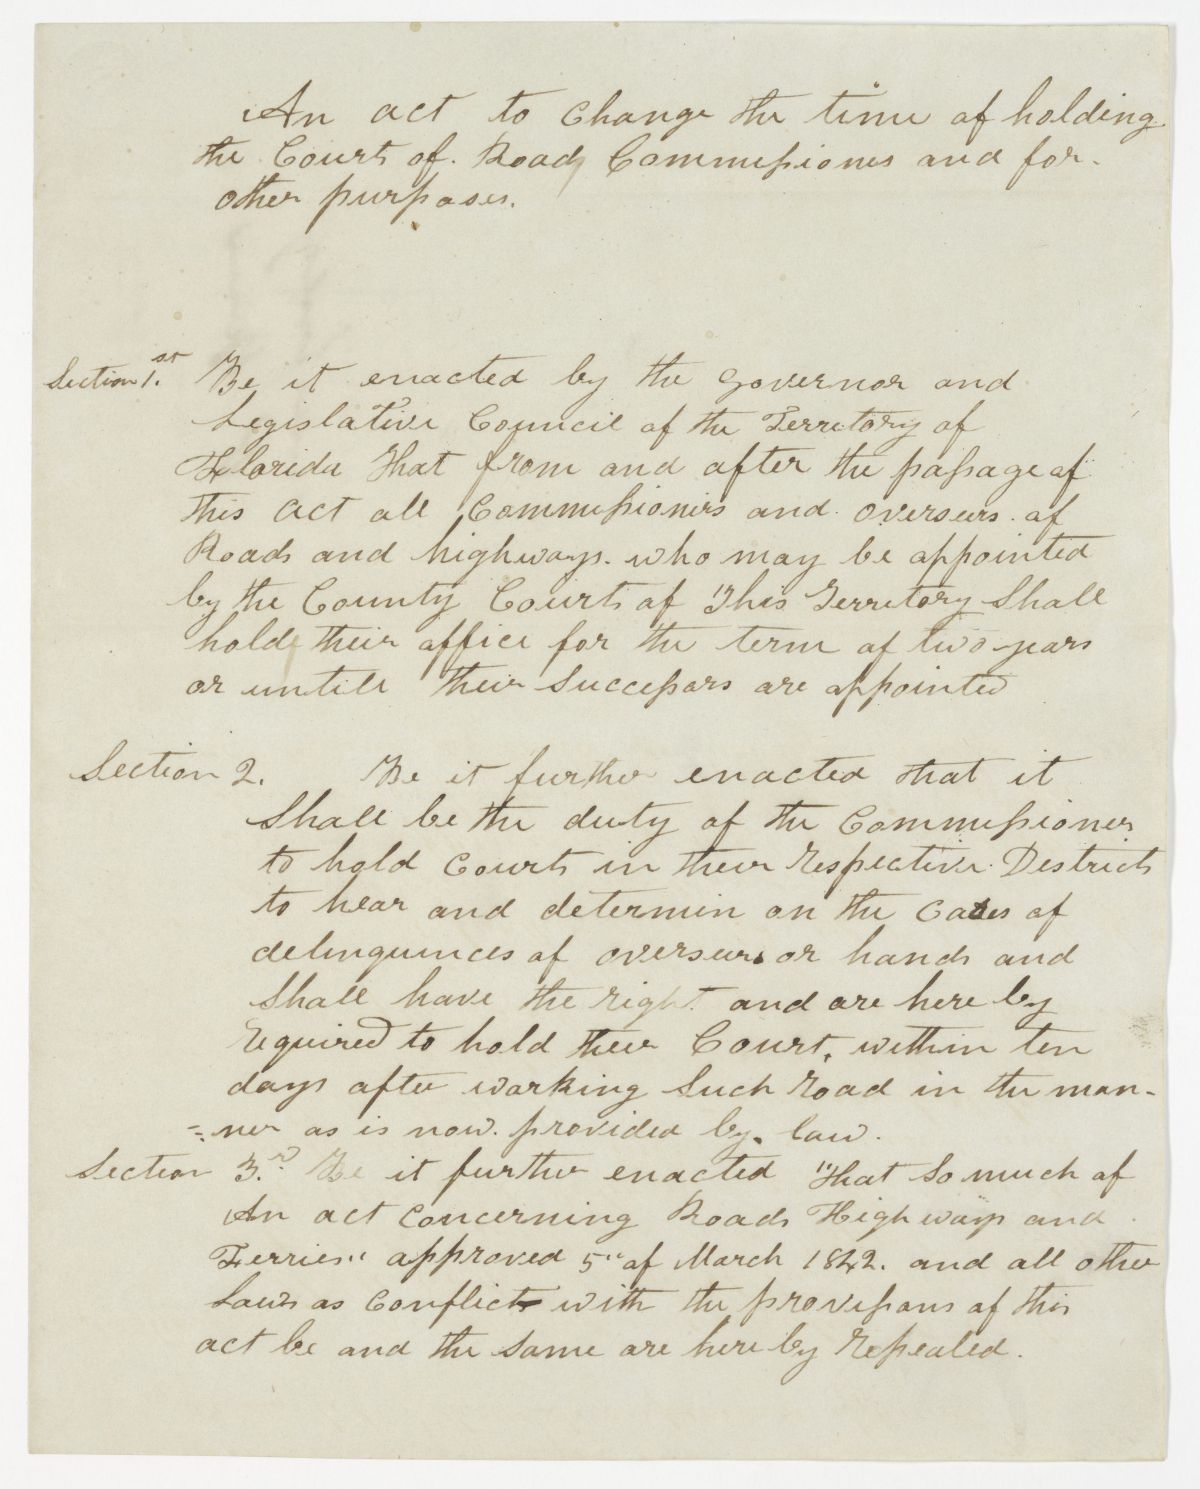 An act to Change the time of holding
the Courts of Road Commissiones and for
other purposes.
Section 1.st Be it enacted by the Governor and
Legislative Council of the Territory of
Florida That from and after the passage of
this act all Commissioners and overseers of
Roads and highways who may be appointed
by the County Courts of This Territory Shall
hold their office for the term of two years
or untill their Successors are appointed
Section 2. Be it further enacted that it
Shall be the duty of the Commissioner
to hold Courts in their respective Districts
to hear and determin on the Cases of
delinquinces of overseers or hands and
Shall have the right and are here by
required to hold their Court, within ten
days after working Such road in the man-
=ner as is now provided by law.
Section 3.rd Be it further enacted "That So much of
An act Concerning Roads Highways and
Ferries" approved 5" of March 1842. and all other
Laws as Conflict with the provisions of this
act be and the Same are here by repealed.